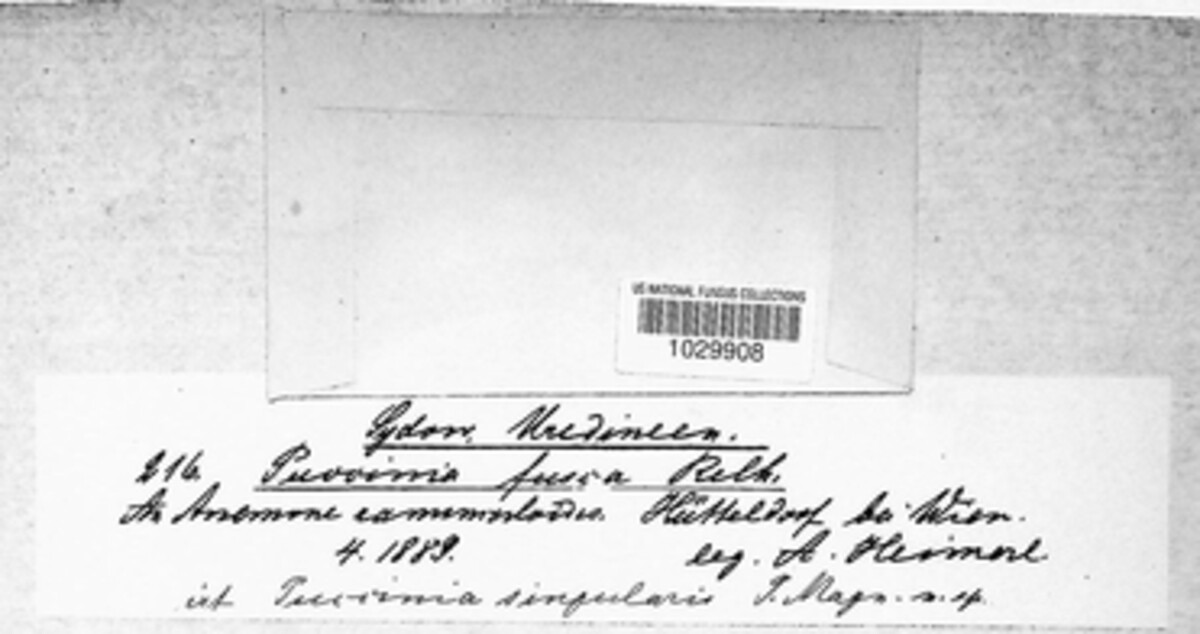 US NATIONAL FUNGUS COLLECTIONS
1029908
Sydow, Uredineen.
216. Puccinia fusca Relh.
An Anemone ranunculoides. Hütteldorf bei Wien.
4. 1889. leg. A. Heimerl.
ist Puccinia singularis P. Magn. n. sp.